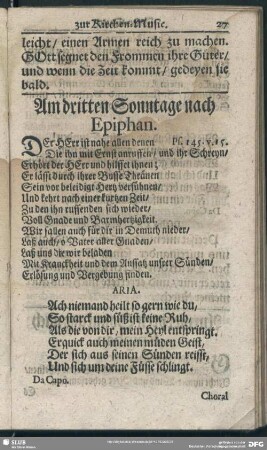 zur Kirchen-Music. 27
leicht / einen Armen reich zu machen.
GOtt segnet den Frommen ihre Güter /
und wenn die Zeit kommt / gedeyen sie
bald.
Am dritten Sonntage nach
Epiphan.
DEr HErr ist nahe allen denen Ps. 145. v. 15.
Die ihn mit Ernst anruffen / und ihr Schreyn /
Erhört der HErr und hilfft ihnen;
Er lässt durch ihrer Busse Thränen
Sein vor beleidigt Hertz versühnen /
Und kehrt nach einer kurtzen Zeit /
Zu den ihn ruffenden sich wieder /
Voll Gnade und Barmhertzigkeit.
Wir fallen auch für dir in Demuth nieder /
Laß auch / o Vater aller Gnaden /
Laß uns die wir beladen
Mit Kranckheit und dem Aussatz unsrer Sünden /
Erlösung und Vergebung finden.
ARIA.
Ach niemand heilt so gern wie du /
So starck und süß ist keine Ruh /
Als die von dir / mein Heyl entspringt.
Erquick auch meinen müden Geist /
Der sich aus seinen Sünden reisst /
Und sich um deine Füsse schlingt.
Da Capo.
Choral
SLUB